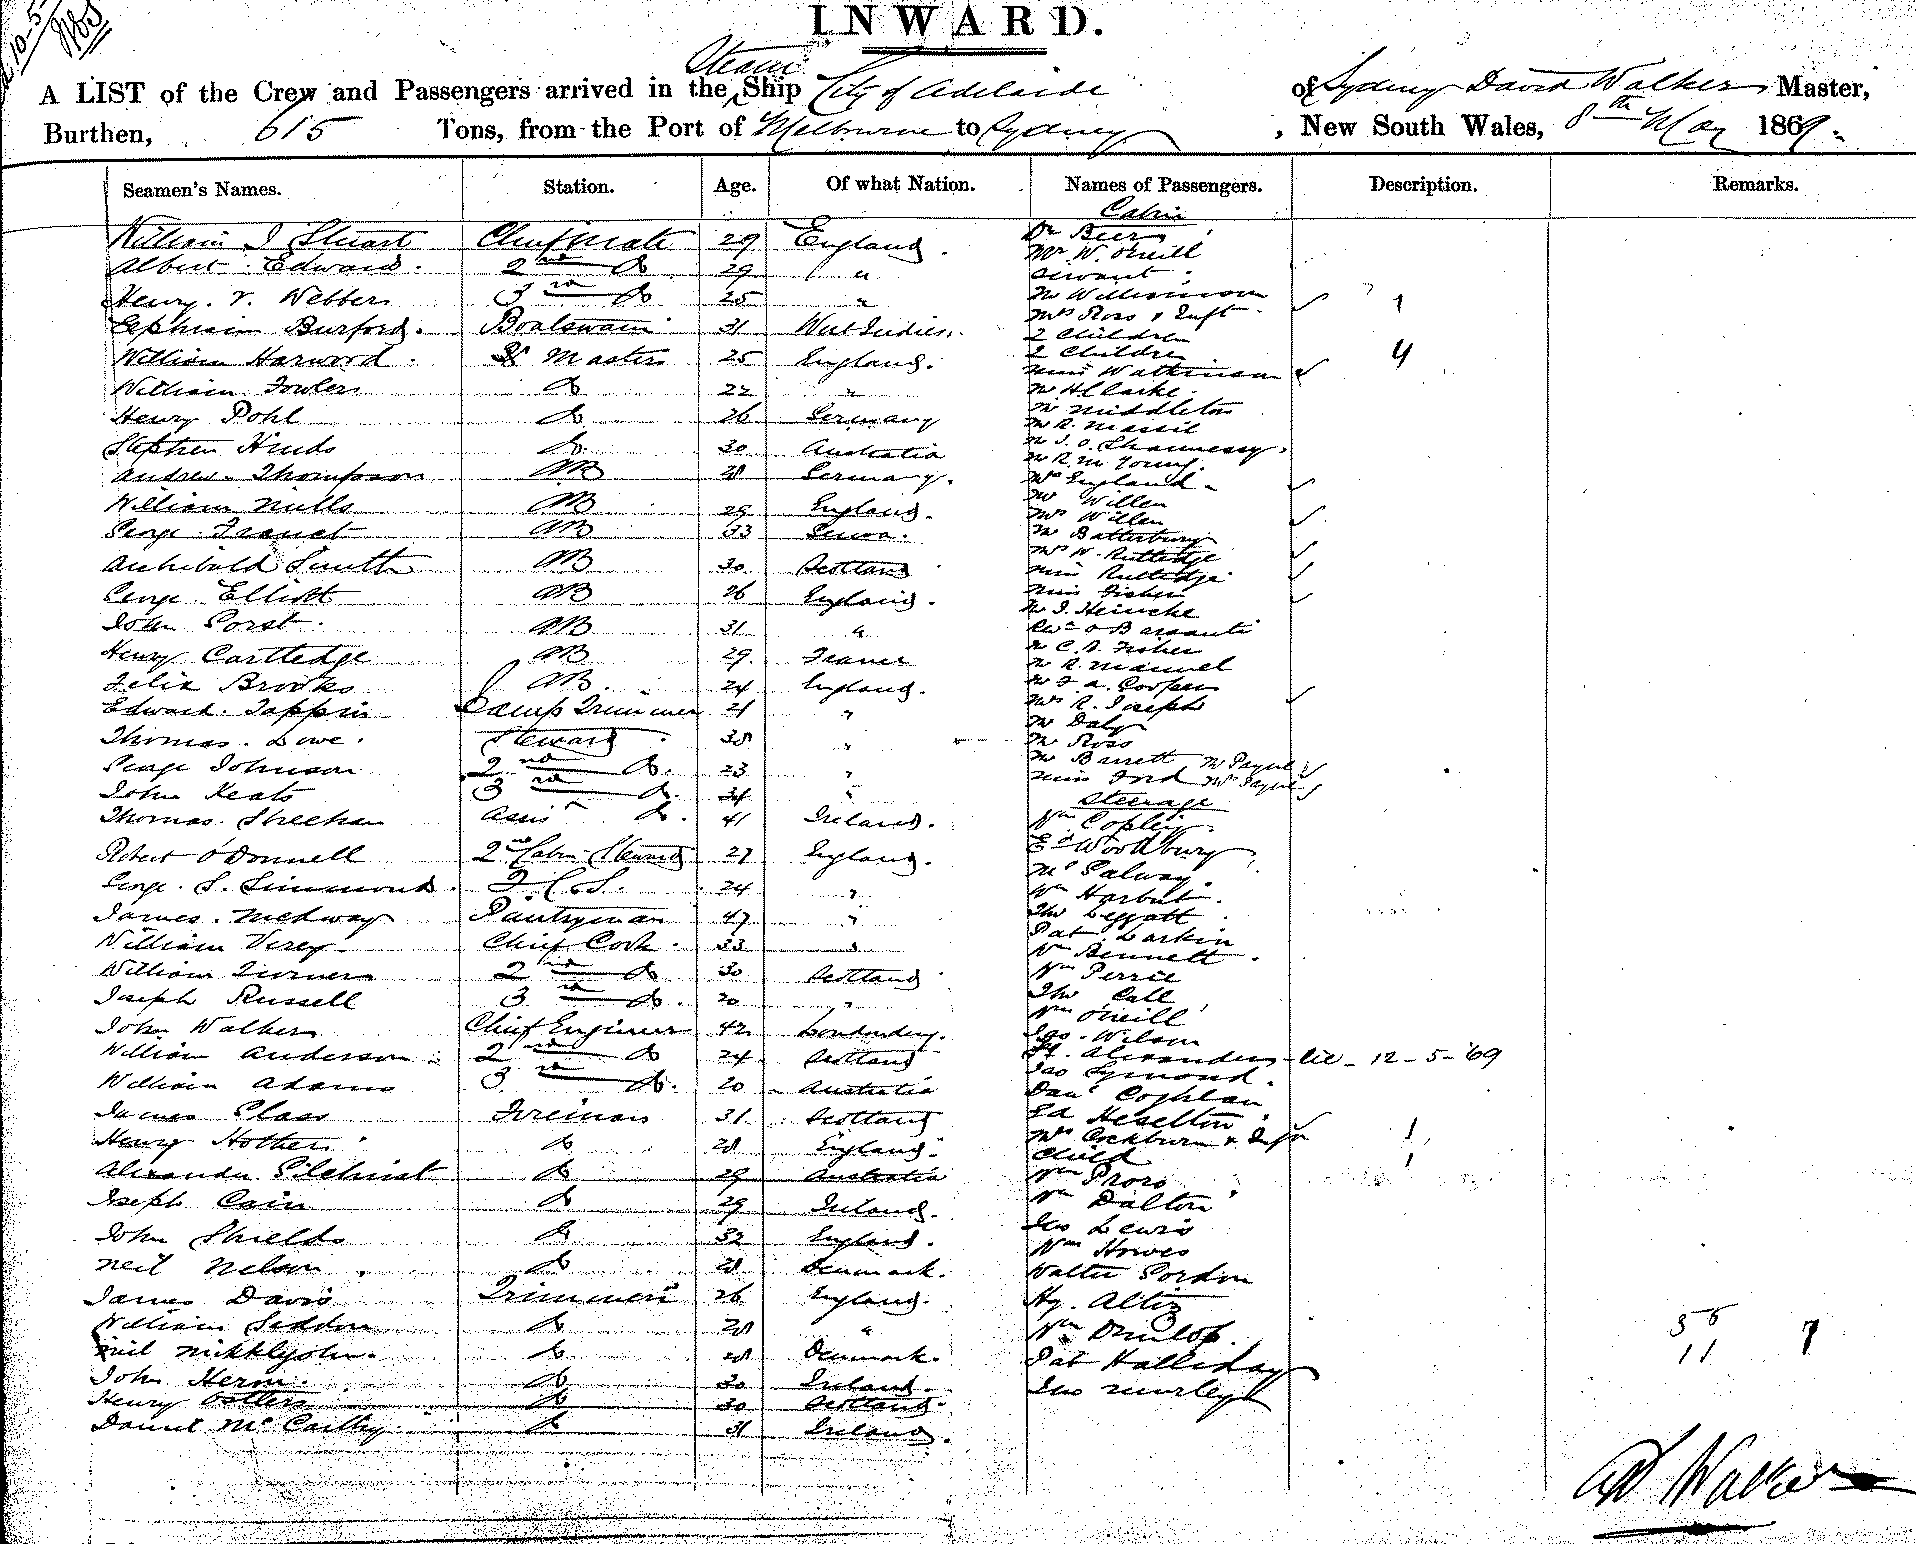 10-5
INWARD.
Steam
A LIST of the Crew and Passengers arrived in the Ship City of Adelaide of Sydney David Walker Master,
Burthen, 615 Tons, from the Port of Melbourne to Sydney, New South Wales, 8th May 1869.
Seamen's Names. Station. Age. Of what Nation. Names of Passengers. Description. Remarks.
Cabin
William J Stuart Chief Mate 29 England. Dr Beer
Mr W. ONeill
Albert Edward. 2nd Do 29 "
servant
Henry. V. Webber 3rd Do 25 " Mr Williamson
Mrs Ross & Inft. 1
Ephraim Burford. Boatswain 31 West Indies. 2 Children
William Harwood. Masters 25 England. 2 Children 4
Miss Watkinson
William Fowler Do 22 " Mr H Clarke
Henry Pohl Do 26 Germany Mr Middleton
Mr R. Massil
Stephen Hinds Do. 30 Australia Mr J. O. Shannessy.
Andrew Thompson AB 28 Germany. Mr R. M. Young.
Mrs England
William Mills AB 29 England. Mr Willen
Mrs Willen
George Franct AB 33 Genoa. Mr Batterbury
Mrs W. Rutledge
Archibald Smith AB 30 Scotland Miss Rutledge
George Elliott AB 26 England. Miss Fisher
Mr J. Heincke
John Porst. AB 31 "
Henry Cartledge AB 29. France Mr C. B. Fisher
Mr R. Manuel
Felix Brooks AB. 24 England. Mr F. A. Cooper
Edward. Tappin Lamp Trimmer 21 " Mrs R. Joseph
Mr Daly
Thomas. Lowe. Steward 38 " Mr Ross
George Johnson 2nd Do. 23 " Mr Barrett Mr Payne
Miss Ford Mrs Payne
John Keats 3rd Do. 34 " Steerage
Thomas. Sheehan Assist Do. 41 Ireland. Wm Copley
Robert O'Donnell 2nd Cabin Steward 27 England. Ed Woodbury
George. S. Simmonds. F.C.S. 24 " Mc Galway.
Wm Harbut.
James. Medway Pantryman 47 " Tho Leggatt
William Verey Chief Cook. 33 " Pat Larkin
Wm Bennett.
William Turner 2nd Do 30 Scotland Wm Perrie
Joseph Russell 3rd Do. 20 " Tho Call
Wm ONeill
John Walker Chief Engineer 42 Londonderry. Jas. Wilson
William Anderson 2nd Do 24 Scotland Alexander 12-5-'69
Jas Symond.
William Adams 3rd Do. 20 Australia Danl Coghlan
James Glass Fireman 31 Scotland Ed Heselton
Henry Hother Do 28 England. Mrs Cockburn & Infn 1
Child 1
Alexander Gilchrist Do 29 Australia Wm Prors
Joseph Cain Do 29 Ireland. Wm Dalton
Jno Lewis
John Shields Do 32 England. Wm Howes
Neil Nelson Do 28 Denmark. Walter Gordon
James Davis Trimmers 26 England. Hy. Altiz
William Seddon Do 28 " Wm Dunlop.
56
11 7
Neil Do 28 Denmark. Pat Halliday
John Herm. Do 30 Ireland. Jno
Henry Ostler Do 30 Scotland.
Daniel McCarthy Do 31 Ireland.
Walker